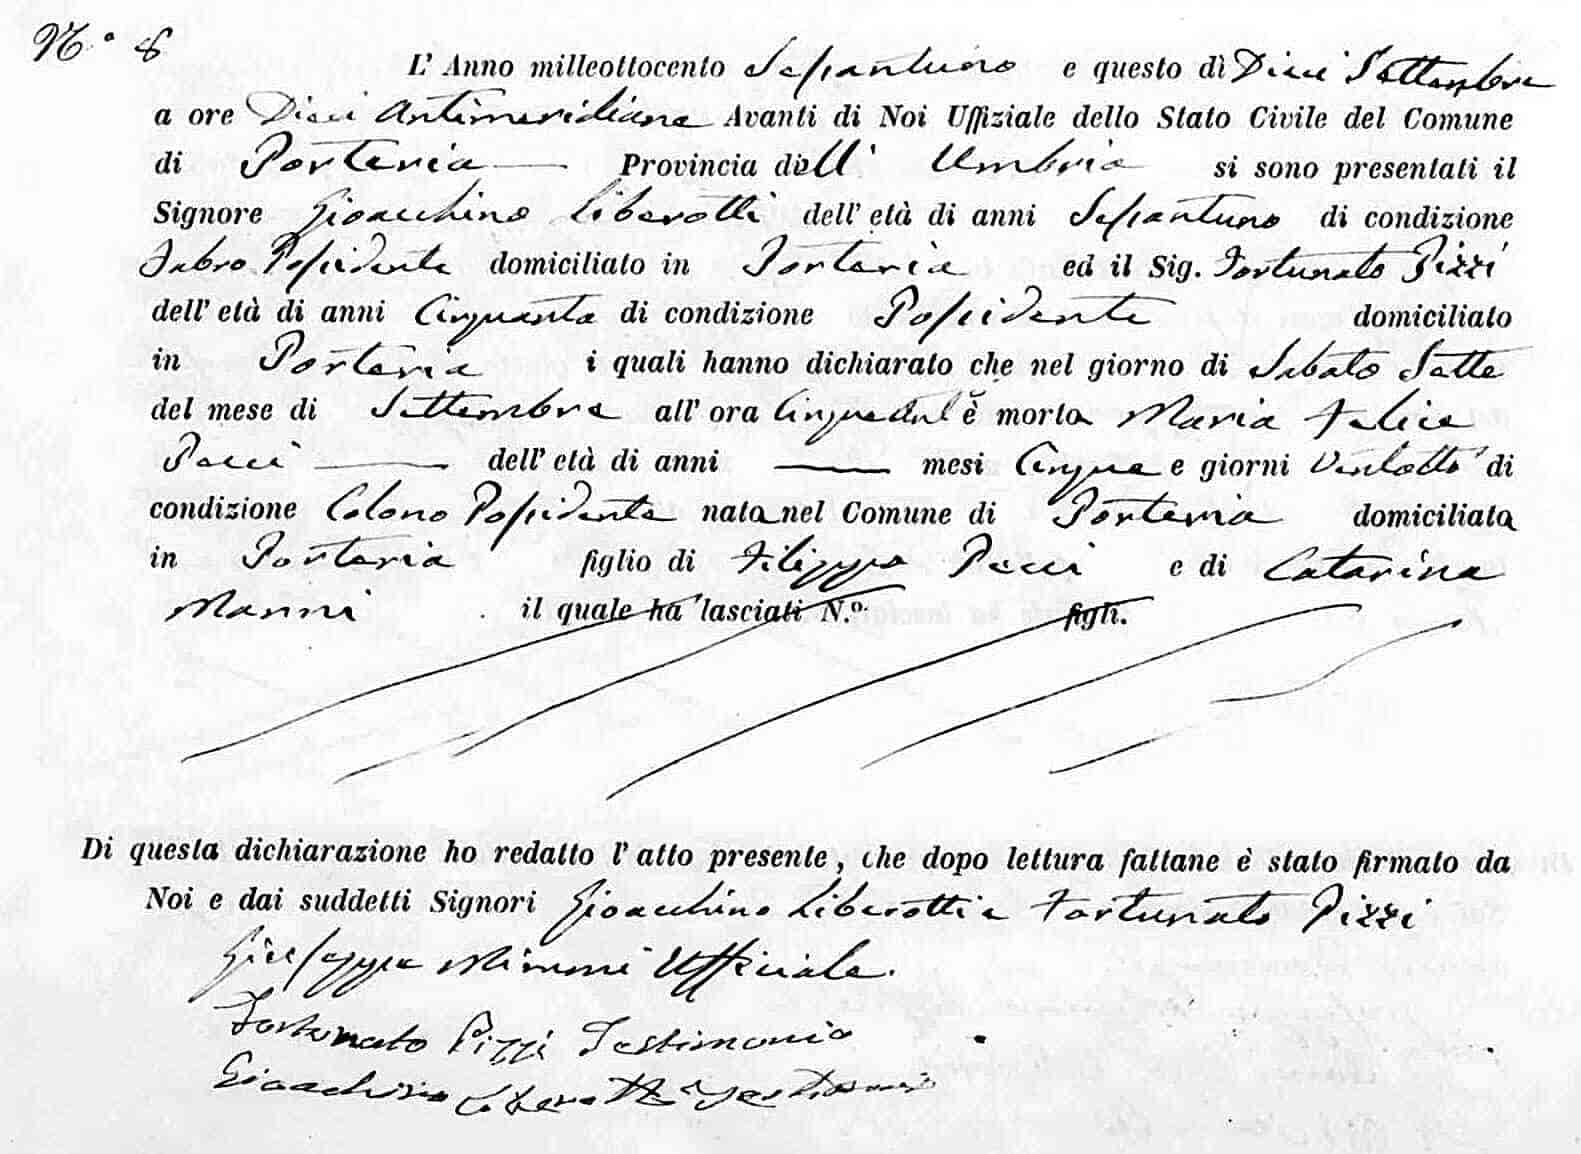 N.° 8
L' Anno milleottocento Sessantuno e questo dì Dieci Settembre
a ore Dieci Antimeridiane Avanti di Noi Uffiziale dello Stato Civile del Comune
di Porteria Provincia dell' Umbria si sono presentati il
Signore Gioacchino Liberotti dell' età di anni Sessantuno di condizione
Fabro Possidente domiciliato in Porteria ed il Sig. Fortunato Pizzi
dell' età di anni Cinquanta di condizione Possidente domiciliato
in Porteria i quali hanno dichiarato che nel giorno di Sabato Sette
del mese di Settembre all' ora Cinque è morta Maria Felice
Pecci dell' età di anni mesi Cinque e giorni Ventotto di
condizione Colono Possidente nata nel Comune di Porteria domiciliata
in Porteria figlio di Filippo Pecci e di Catarina
Manni il quale ha lasciati N.° figli.
Di questa dichiarazione ho redatto l' atto presente, che dopo lettura fattane è stato firmato da
Noi e dai suddetti Signori Gioacchino Liberotti e Fortunato Pizzi
Giuseppe Mimmi Ufficiale.
Fortunato Pizzi Testimonio
Gioachino Liberotti Testimonio